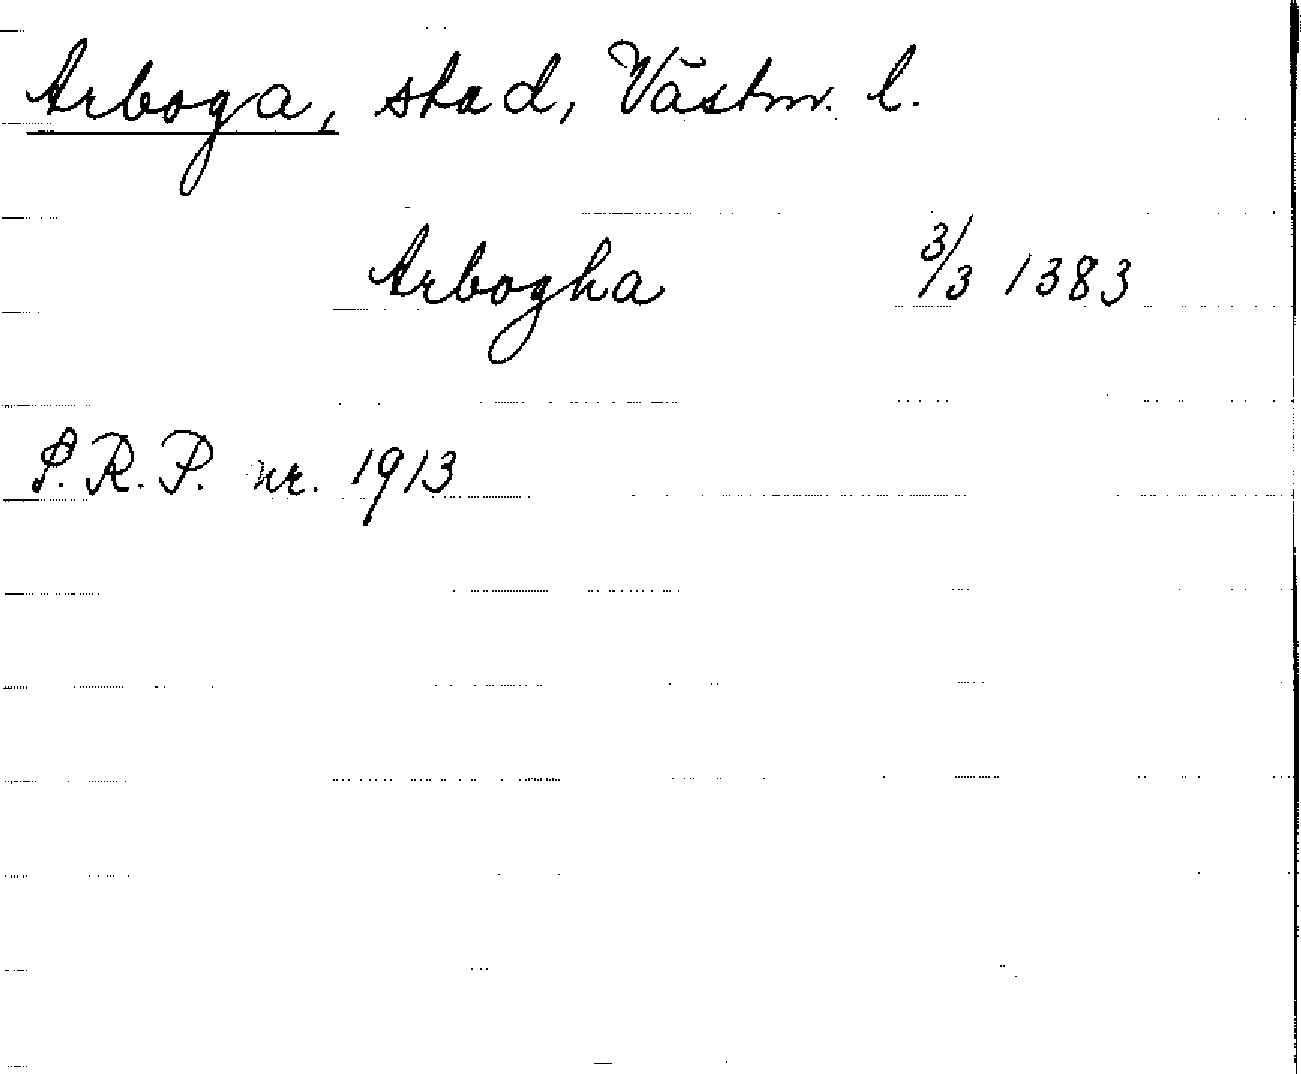 Arboga, stad, Västm. l.
Arbogha 3/3 1383
S.R.P. nr. 1913